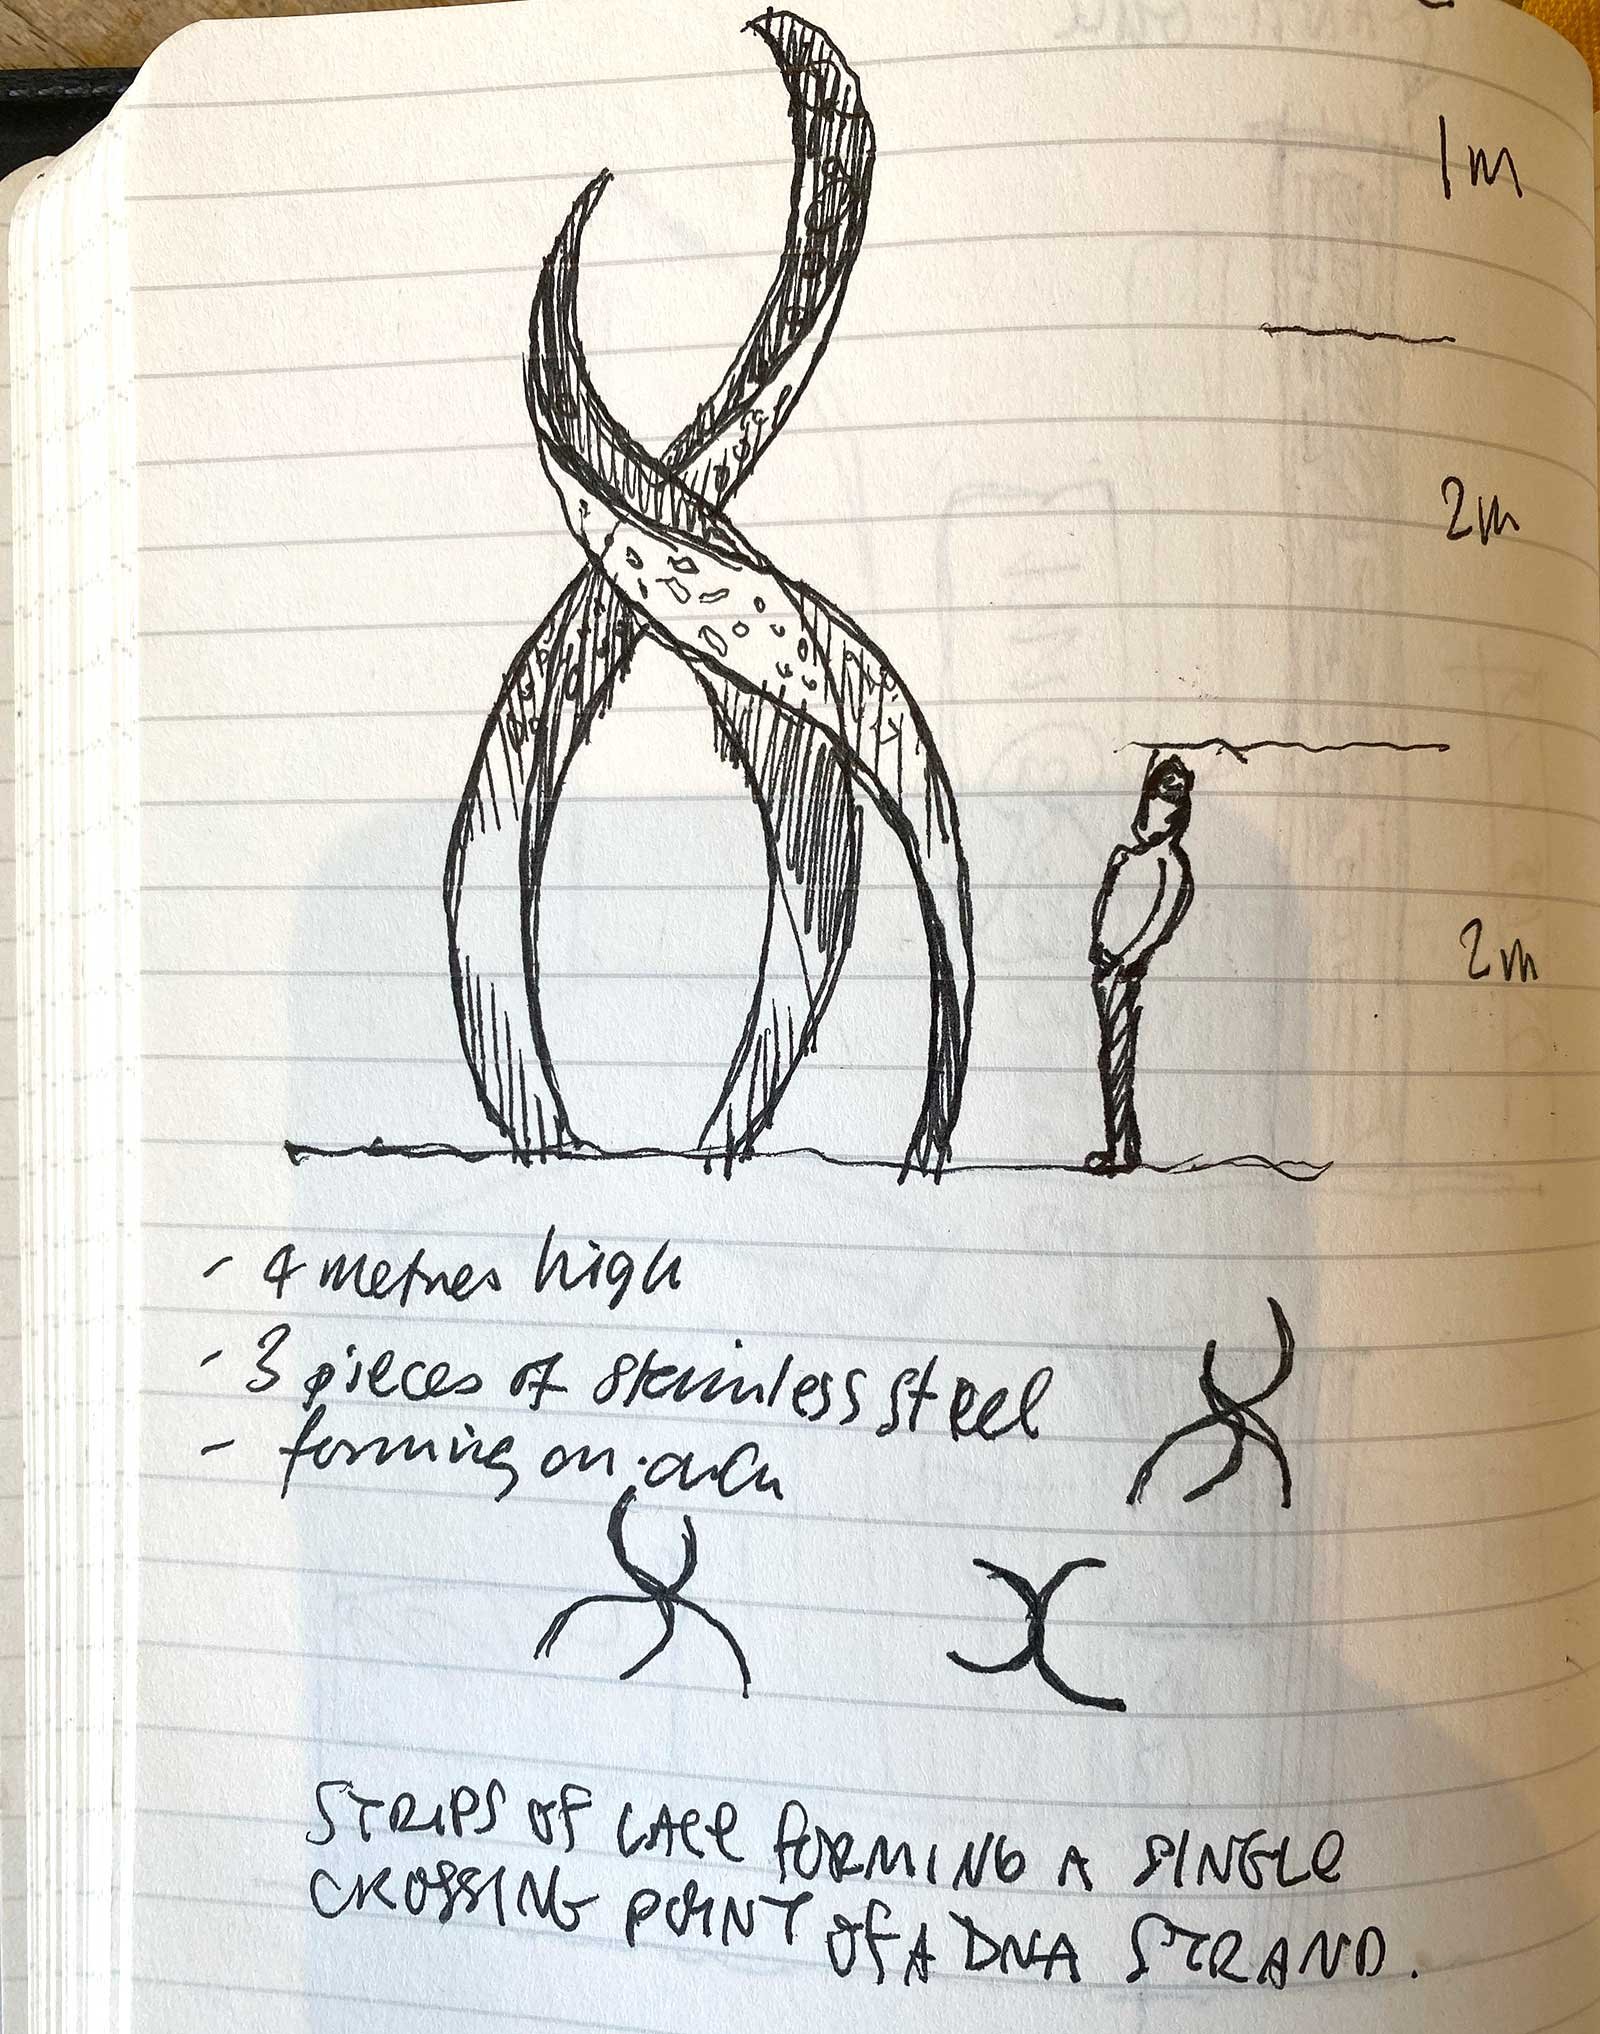 1m
2m
2m
- 4 metres high
- 3 pieces of stainless steel
- forming an arch
STRIPS OF LACE FORMING A SINGLE
CROSSING POINT OF A DNA STRAND.